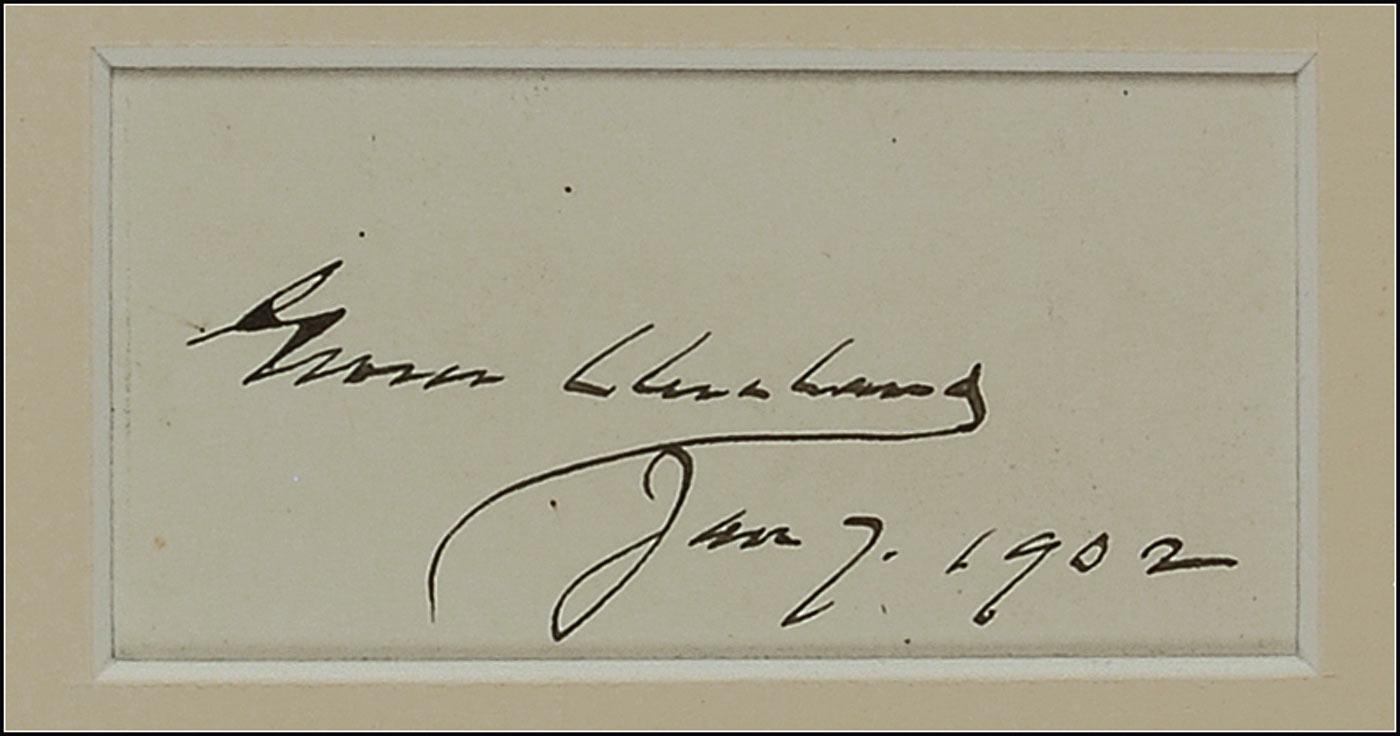 Grover Cleveland
Jan 7. 1902